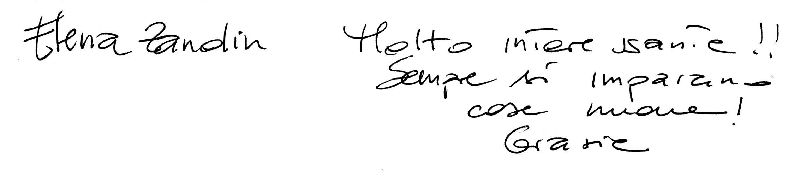 Elena Zandin Molto interessante!!
Sempre si imparano
cose nuove!
Grazie